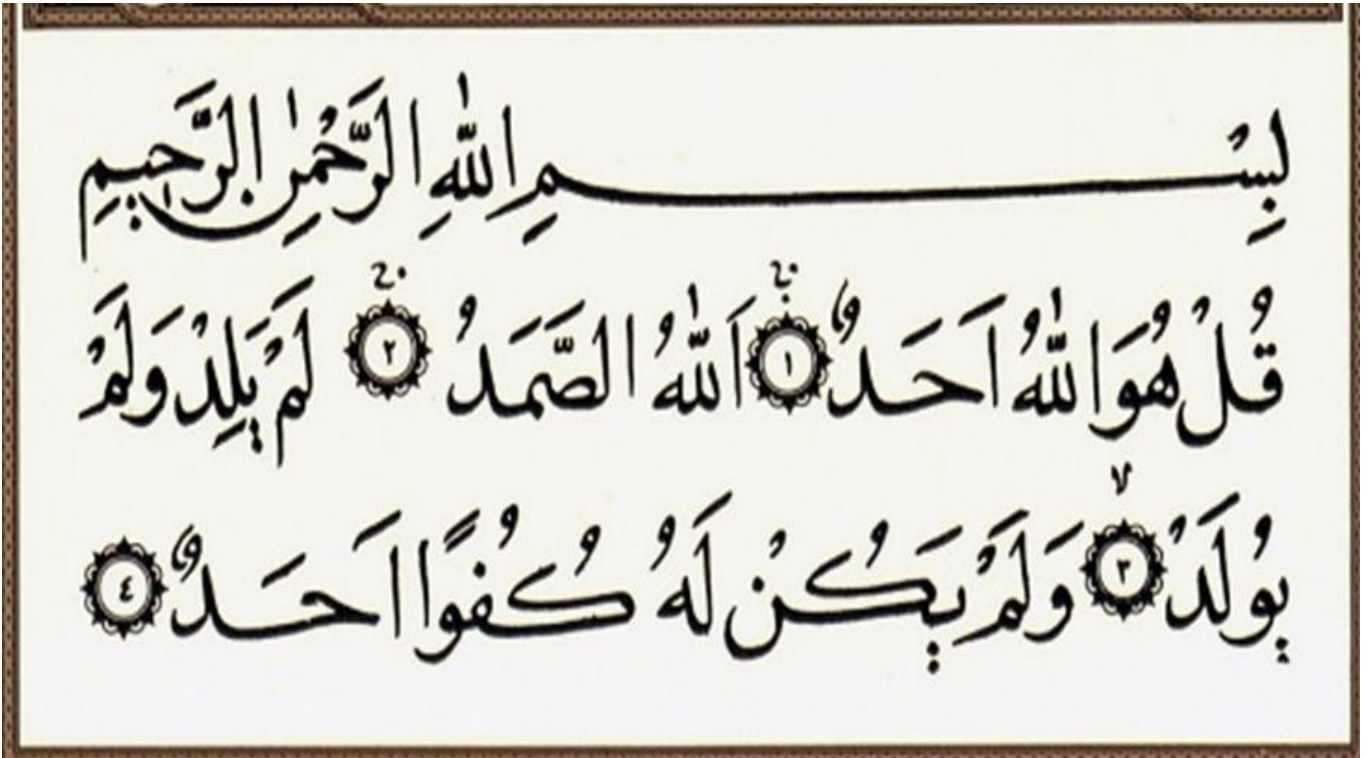 بِسْمِ اللّٰهِ الرَّحْمٰنِ الرَّحِيمِ
قُلْ هُوَ اللّٰهُ اَحَدٌ ١ اَللّٰهُ الصَّمَدُ ٢ لَمْ يَلِدْ وَلَمْ
يُولَدْ ٣ وَلَمْ يَكُنْ لَهُ كُفُوًا اَحَدٌ ٤